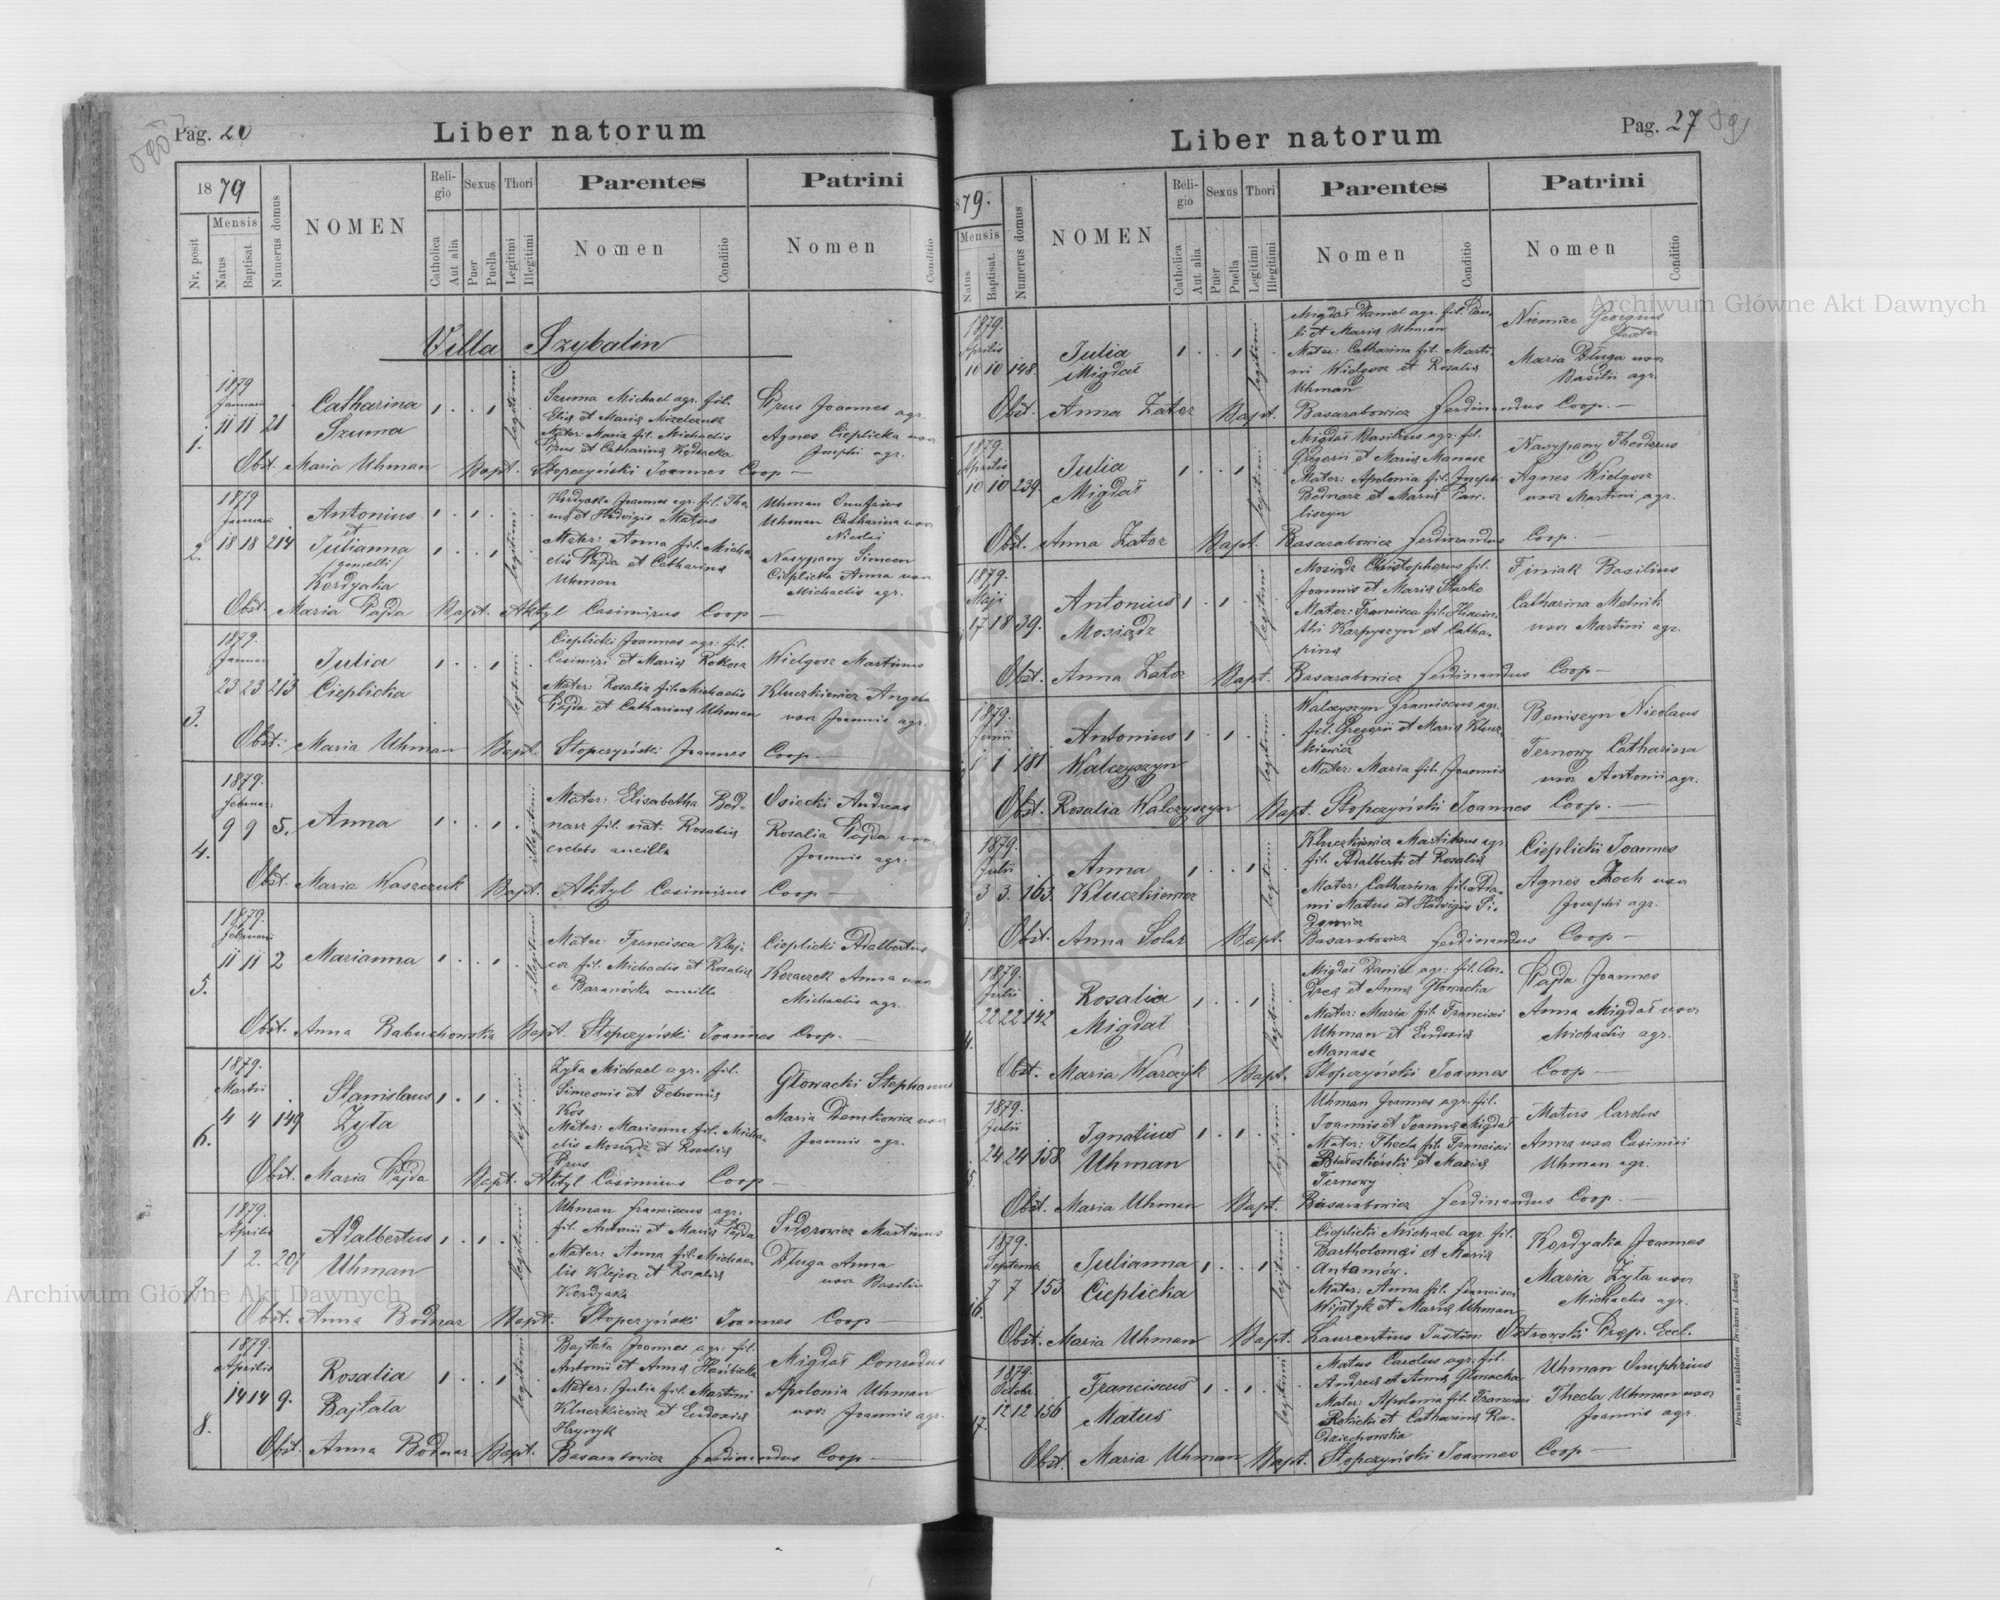 Pag. 20
Liber natorum
1879
Nr. posit
Mensis
Natus
Baptisat.
Numerus domus
NOMEN
Religio
Catholica
Aut alia
Sexus
Puer
Puella
Thori
Legitimi
Illegitimi
Parentes
Nomen
Conditio
Patrini
Nomen
Conditio
Villa Szybalin
1879
Januarii
1. 11 11 21
Catharina
Szuma
legitimi
Szuma Michael agr. fil.
Mater: Maria fil. Michaelis
Prus et Catharina
Prus Joannes agr.
Agnes Cieplicka uxor
Josephi agr.
Obst. Maria Uhman Bapt. Stopczyński Joannes Coop
1879
Januarii
2. 18 18 214
Antonius
et
Julianna
/gemelli/
Kordyaka
legitimi
Kordyaka Joannes agr. fil. Tho-
mæ et Hedvigis Matus
Mater: Anna fil. Micha-
elis Pajda et Catharina
Uhman
Uhman Onufrius
Uhman Catharina uxor
Nicolai
Nasypany Simeon
Cieplicka Anna uxor
Michaelis agr.
Obst. Maria Pajda Bapt. Aktyl Casimirus Coop
1879.
Januar
3. 23 23 213
Julia
Cieplicka
legitimi
Cieplicki Joannes agr. fil.
Casimiri et Maria Rokosz
Mater: Rosalia fil. Michaelis
Pajda et Catharina Uhman
Wielgosz Martinus
Kluczkiewicz Angela
uxor Joannis agr.
Obst. Maria Uhman Bapt. Stopczyński Joannes Coop
1879.
Februar
4. 9 9 5.
Anna
illegitimi
Mater: Elisabetha Bod-
narz fil. nat. Rosalia
coelebs ancilla
Osiecki Andreas
Rosalia Pajda uxor
Joannis agr.
Obst. Maria Waszczuk Bapt. Aktyl Casimirus Coop
1879.
Februarii
5. 11 11 2
Marianna
illegitimi
Mater: Francisca Klej-
cor fil. Michaelis et Rosalia
e Baranówka ancilla
Cieplicki Adalbertus
Kozaczek Anna uxor
Michaelis agr.
Obst. Anna Babuchowska Bapt. Stopczyński Joannes Coop.
1879.
Martii
6. 4 4 149
Stanislaus
Zyła
legitimi
Zyła Michael agr. fil.
Simeonis et Petronia
Kos
Mater: Marianna fil. Micha-
elis Mosiądz et Rosalia
Prus
Głowacki Stephanus
Maria Demkowicz uxor
Joannis agr.
Obst. Maria Pajda Bapt. Aktyl Casimirus Coop
1879.
Aprilis
7. 1 2. 207
Adalbertus
Uhman
legitimi
Uhman Franciscus agr.
fil. Antonii et Maria Pajda
Mater: Anna fil. Michae-
lis Klejcor et Rosalia
Kordyaka
Sidorowicz Martinus
Długa Anna
uxor Basilii
Obst. Anna Bodnar Bapt. Stopczyński Joannes Coop
1879.
Aprilis
8. 14 14 9.
Rosalia
Bajtała
legitimi
Bajtała Joannes agr. fil.
Antonii et Anna
Mater: Julia fil. Martini
Kluczkiewicz et Eudoxia
Hrynyk
Migdał Conradus
Apolonia Uhman
uxor Joannis agr.
Obst. Anna Bodnar Bapt. Basarabowicz Ferdinandus Coop
Pag. 27
Liber natorum
1879.
Mensis
Natus
Baptisat.
Numerus domus
NOMEN
Religio
Catholica
Aut alia
Sexus
Puer
Puella
Thori
Legitimi
Illegitimi
Parentes
Nomen
Conditio
Patrini
Nomen
Conditio
1879.
Aprilis
10 10 148.
Julia
Migdał
legitimi
Migdał Daniel agr. fil. Pau-
li et Maria Uhman
Mater: Catharina fil. Marti-
ni Wielgosz et Rosalia
Uhman
Niemiec Georgius
Maria Długa uxor
Basilii agr.
Obst. Anna Zator Bapt. Basarabowicz Ferdinandus Coop.
1879.
Aprilis
10 10 239.
Julia
Migdał
legitimi
Migdał Basilius agr. fil.
Gregorii et Maria Manasz
Mater: Apolonia fil. Josephi
Bodnarz et Maria Paw-
liszyn
Nasypany Theodorus
Agnes Wielgosz
uxor Martini agr.
Obst. Anna Zator Bapt. Basarabowicz Ferdinandus Coop.
1879.
Maji
17 18 39.
Antonius
Mosiądz
legitimi
Mosiądz Christophorus fil.
Joannis et Maria Sharko
Mater: Francisca fil. Hiacin-
thi Karpyszyn et Catha-
rina
Finiak Basilius
Catharina Melnik
uxor Martini agr.
Obst. Anna Zator Bapt. Basarabowicz Ferdinandus Coop
1879.
Junii
1 1 181
Antonius
Walczyszyn
legitimi
Walczyszyn Franciscus agr.
fil. Gregorii et Maria Klucz-
kiewicz
Mater: Maria fil. Joannis
Beniszyn Nicolaus
Ternowy Catharina
uxor Antonii agr.
Obst. Rosalia Walczyszyn Bapt. Stopczyński Joannes Coop.
1879.
Julii
3 3. 163.
Anna
Kluczkiewicz
legitimi
Kluczkiewicz Martinus agr.
fil. Adalberti et Rosalia
Mater: Catharina fil. Ada-
mi Matus et Hedvigis Si-
dorowicz
Cieplicki Joannes
Agnes Zhoch uxor
Josephi agr.
Obst. Anna Solar Bapt. Basarabowicz Ferdinandus Coop
1879.
Julii
22 22 142
Rosalia
Migdał
legitimi
Migdał Daniel agr. fil. An-
drea et Anna Głowacka
Mater: Maria fil. Francisci
Uhman et Eudoxia
Manasz
Pajda Joannes
Anna Migdał uxor
Michaelis agr.
Obst. Maria Warczyk Bapt. Stopczyński Joannes Coop
1879.
Julii
15. 24 24 158
Ignatius
Uhman
legitimi
Uhman Joannes agr. fil.
Joannis et Joanna Migdał
Mater: Thecla fil. Francisci
Białoskórski et Maria
Ternowy
Matus Carolus
Anna uxor Casimiri
Uhman agr.
Obst. Maria Uhman Bapt. Basarabowicz Ferdinandus Coop.
1879.
Septemb.
16. 7 7 153
Julianna
Cieplicka
legitimi
Cieplicki Michael agr. fil.
Bartholomæi et Maria
Antonów.
Mater: Anna fil. Francisci
Wijatyk et Maria Uhman
Kordyaka Joannes
Maria Zyła uxor
Michaelis agr.
Obst. Maria Uhman Bapt. Laurentius Justin. Ostrowski Præp. Eccl.
1879.
Octobr.
17. 12 12 156
Franciscus
Matus
legitimi
Matus Carolus agr. fil.
Andrea et Anna Głowacka
Mater: Apolonia fil. Francisci
Rokicki et Catharina Ra-
dziechowska
Uhman Onuphrius
Thecla Uhman uxor
Joannis agr.
Obst. Maria Uhman Bapt. Stopczyński Joannes Coop
Archiwum Główne Akt Dawnych
Archiwum Główne Akt Dawnych